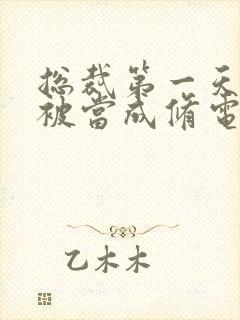 总裁第一天
被當成脩電
乙木木